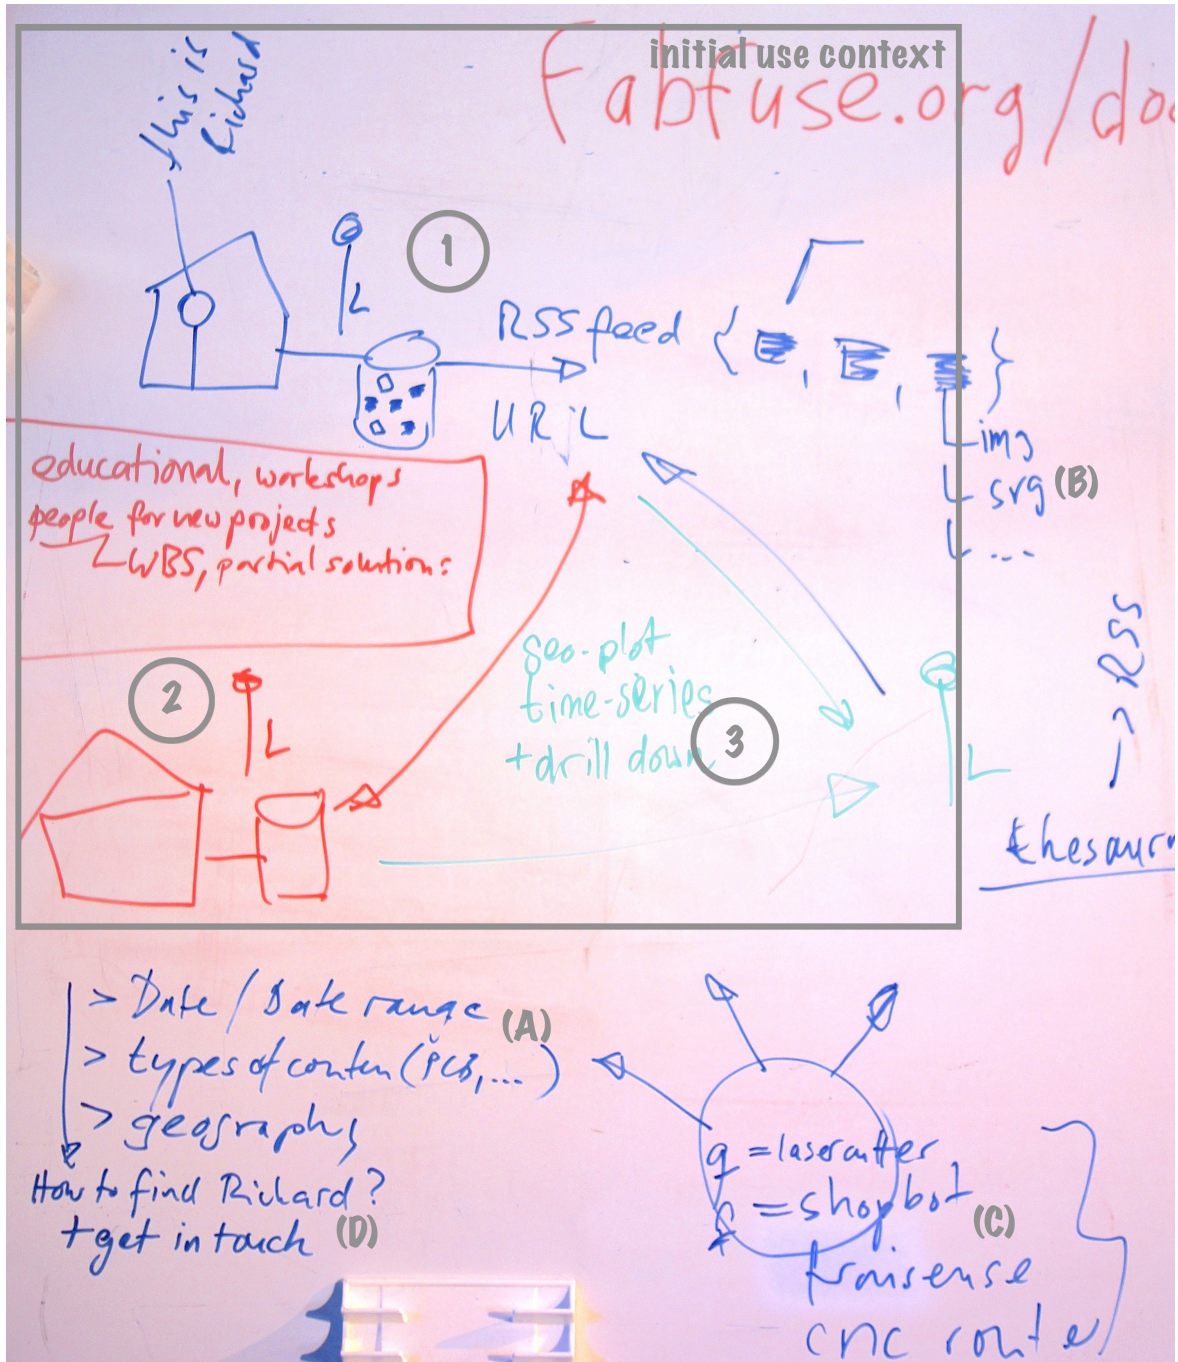 initial use context
Fabfuse.org/doc
this is
Richard
1
L
RSS feed { , , }
URL
img
svg (B)
...
educational, workshops
people for new projects
WBS, partial solutions
2
L
geo-plot
time-series
+ drill down
3
L
→ RSS
thesauru
> Date / Date range (A)
> types of conten (PCB, ...)
> geography
How to find Richard?
+ get in touch (D)
q = lasercutter
f = shopbot (C)
fraiseuse
cnc router